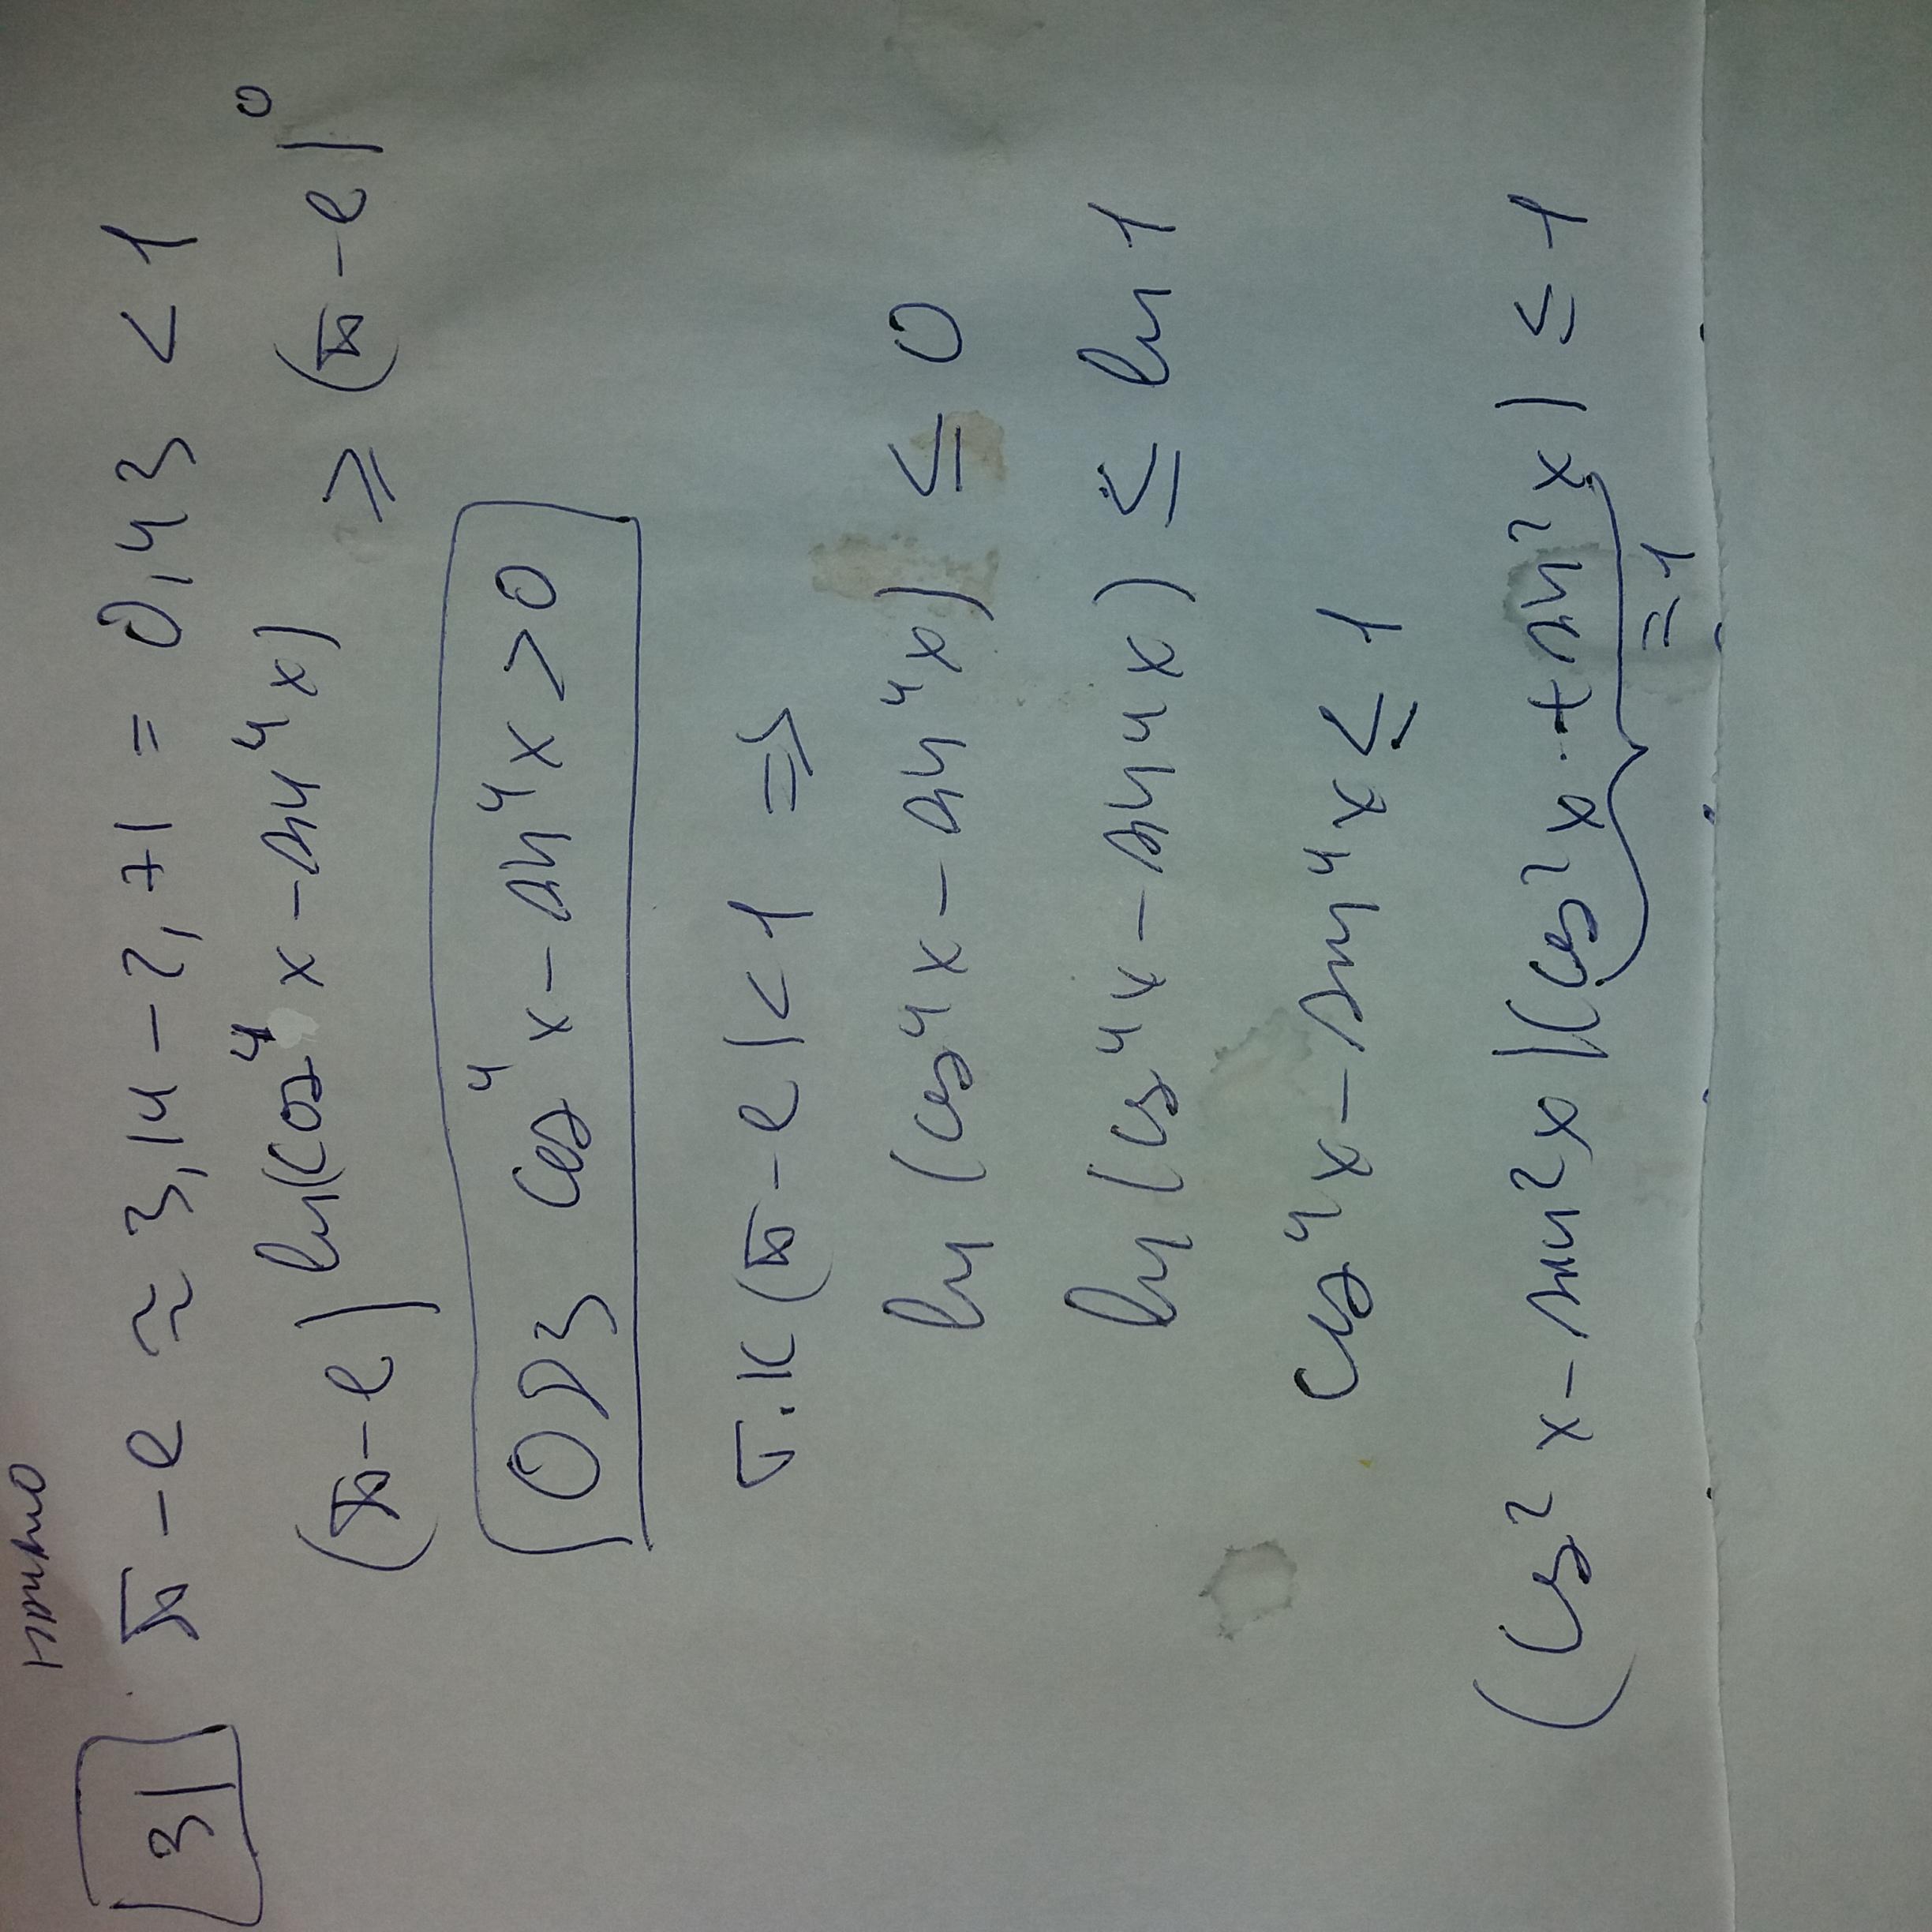 3)
π - e ≈ 3,14 - 2,71 = 0,43 < 1
(π-e)^ln(cos⁴x - sin⁴x) ≥ (π-e)⁰
ОДЗ cos⁴x - sin⁴x > 0
т.к (π-e) < 1 ⇒
ln(cos⁴x - sin⁴x) ≤ 0
ln(cos⁴x - sin⁴x) ≤ ln 1
cos⁴x - sin⁴x ≤ 1
(cos²x - sin²x)(cos²x + sin²x) ≤ 1
= 1